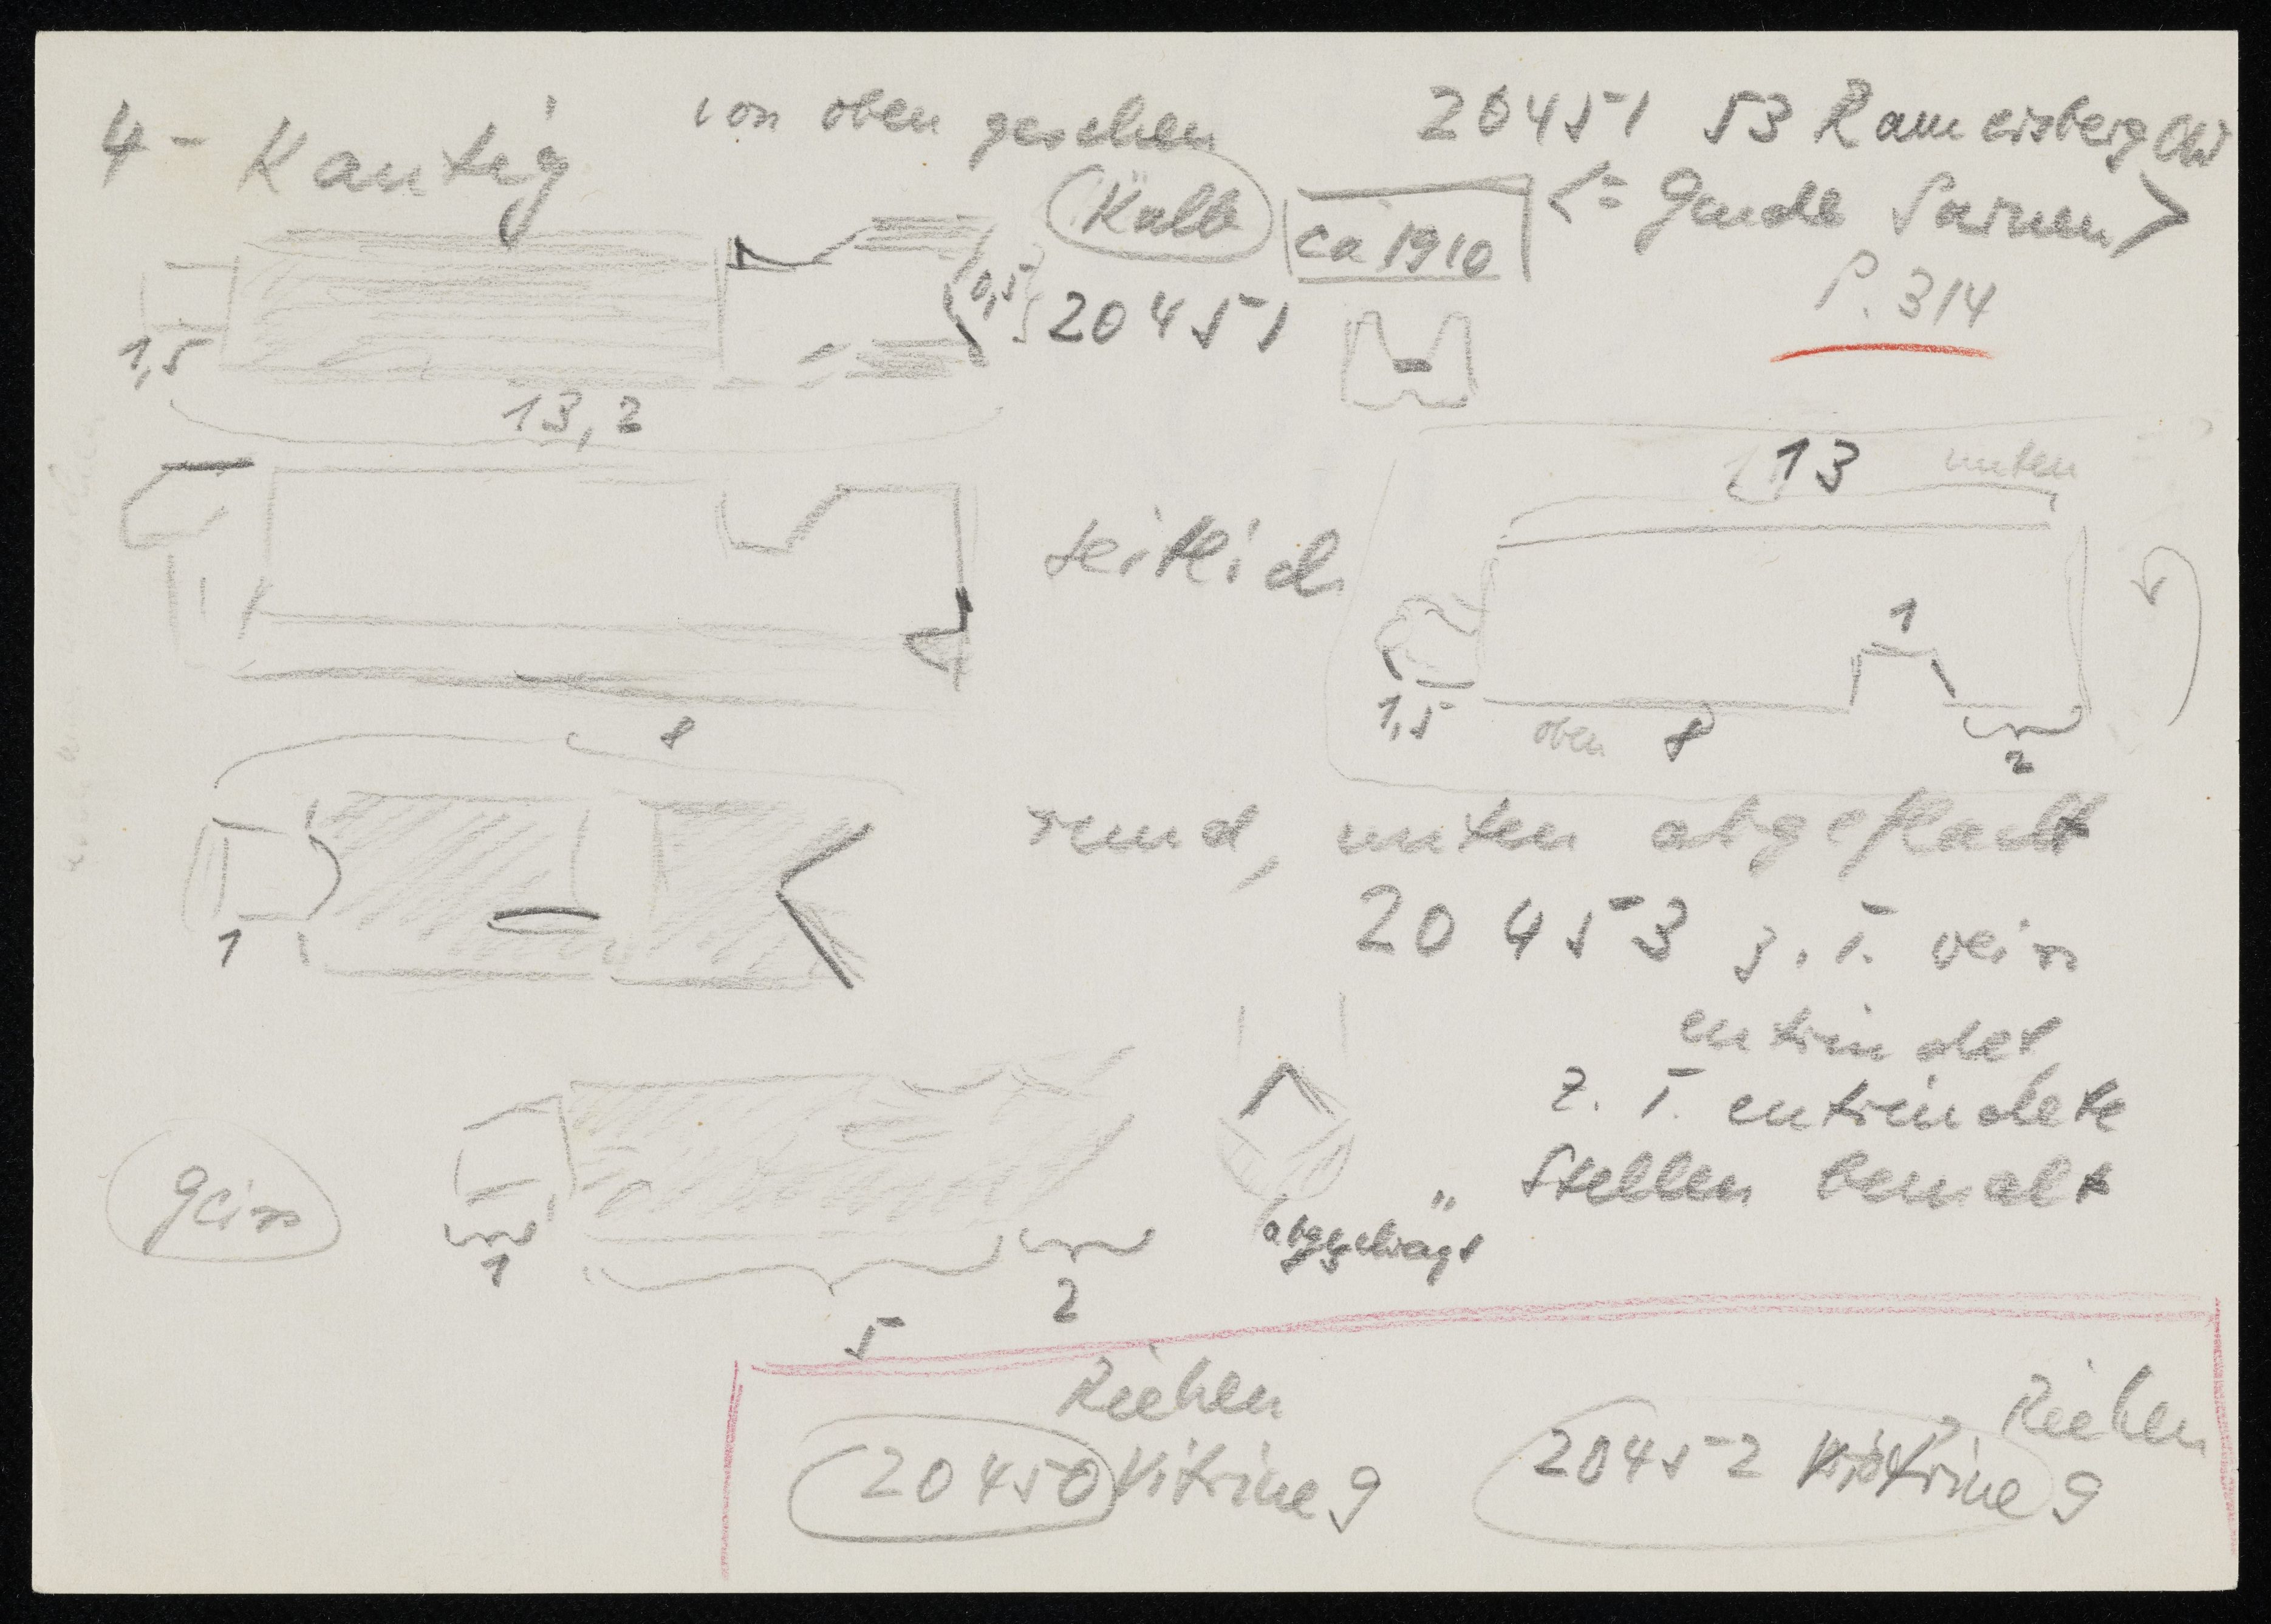 4-Kantig
von oben gesehen
20451 53 Rameisberg
Kalb
ca 1910
<= Gmde Sarnen>
P. 314
0,5
20451
1,5
13,2
13 unten
seitlich
1
1,5
oben 8
2
8
rund, unten abgeflacht
1
20453 z.T. weiss
entrindet
z.T. entrindete
Stellen bemalt
geiss
abgeschrägt
1
2
5
Riehen
20450 Vitrine 9
Riehen
20452 Vitrine 9